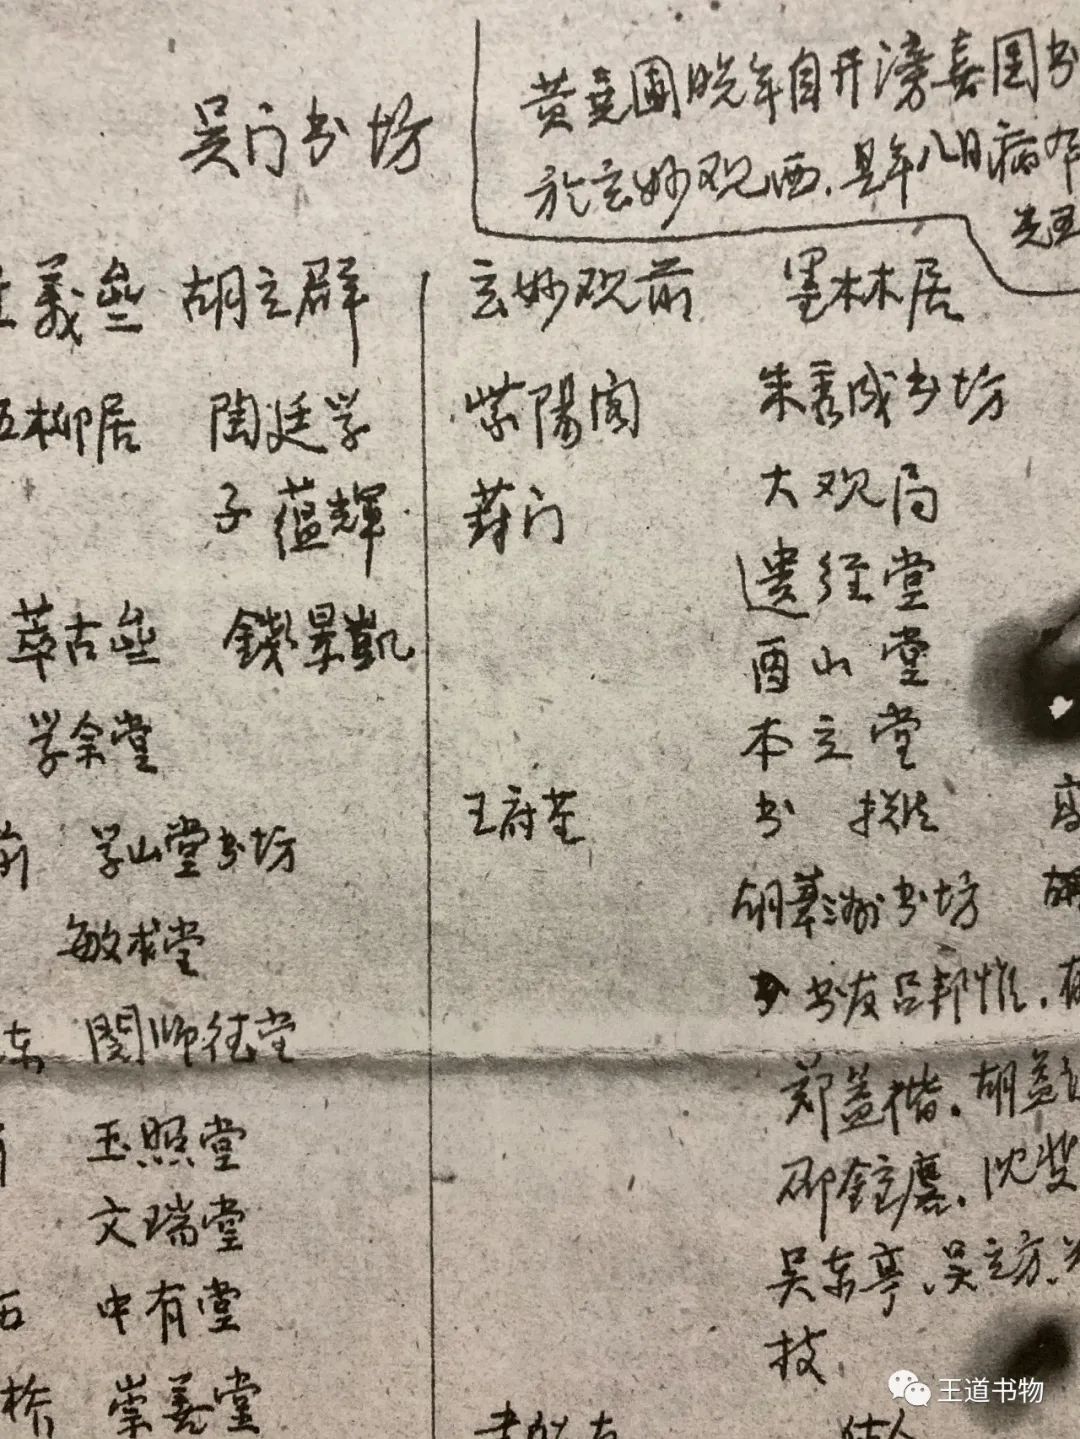 吴门书坊
黄荛圃晚年自开滂喜园书
於玄妙观西，是年八月病卒
義坐 胡立群
五柳居 陶廷学
子蕴輝
萃古坐 錢景凱
学余堂
前 学山堂书坊
敏求堂
东 閔师德堂
玉照堂
文瑞堂
中有堂
桥 崇善堂
玄妙观前 墨林居
紫陽阁 朱秀成书坊
葑门 大观局
遗经堂
酉山堂
本立堂
王府荃 书
胡葦洲书坊
书友吕邦惟，
郑益楷。胡益
邵鍾麐。沈斐
吴东亭、吴立方、
技
王道书物